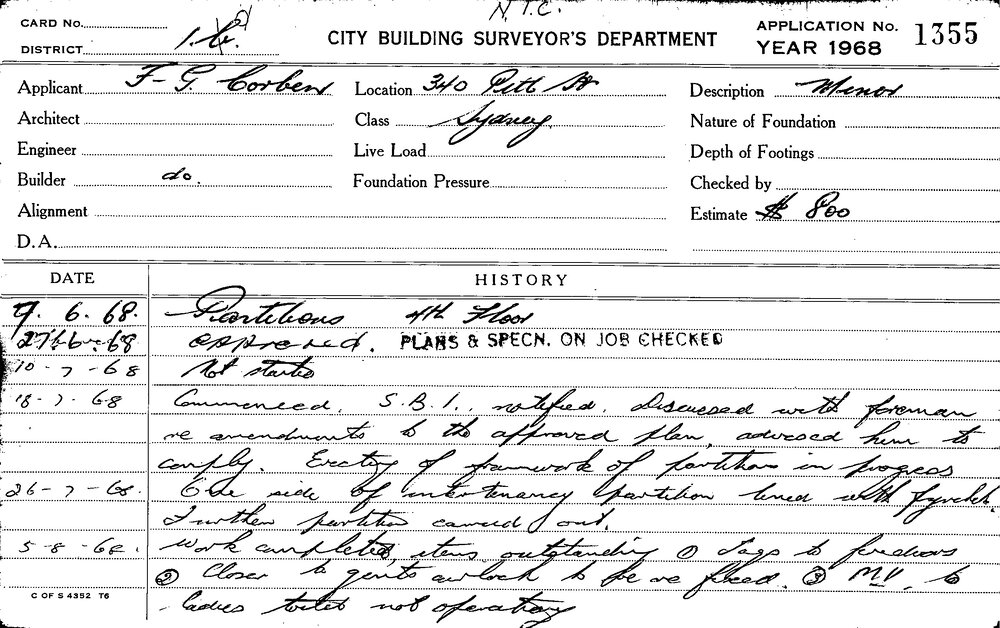 N.T.C.
CARD No.
DISTRICT 1.
CITY BUILDING SURVEYOR'S DEPARTMENT
APPLICATION No. 1355
YEAR 1968
Applicant F. G. Corben Location 340 Pitt St Description Minor
Architect Class Sydney Nature of Foundation
Engineer Live Load Depth of Footings
Builder do. Foundation Pressure Checked by
Alignment Estimate $ 800
D.A.
DATE HISTORY
7. 6. 68. Partitions 4th Floor
27-6-68 approved. PLANS & SPECN. ON JOB CHECKED
10-7-68 Not started
18-7-68 Commenced. S.B.I. notified. Discussed with foreman
re amendments to the approved plan, advised him to
comply. Erecting of framework of partitions in progress
26-7-68. One side of intertenancy partition lined with fyrchek.
Further partition carried out.
5-8-68. Work completed, items outstanding ① Tags to firedoors
② Closer to gents airlock to be re fixed. ③ M.V. to
ladies toilet not operating
C OF S 4352 T6